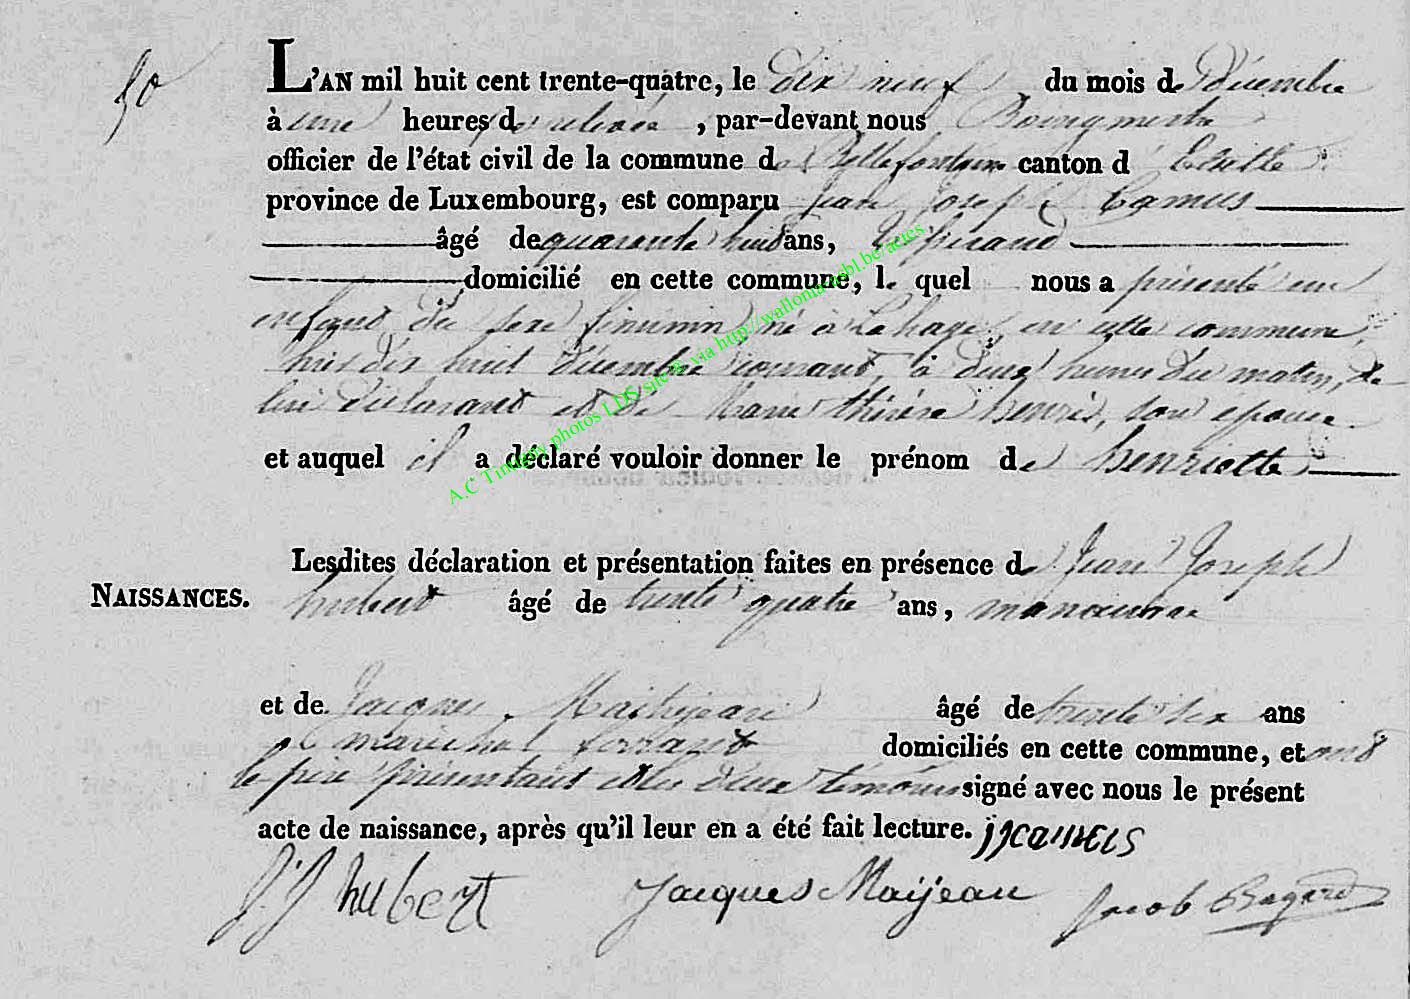 50
L'AN mil huit cent trente-quatre, le dix neuf du mois de Décembre
à une heures de relevée, par-devant nous Bourgmestre
officier de l'état civil de la commune de Bellefontaine canton d'Etalle
province de Luxembourg, est comparu Jean Joseph Camus
âgé de quarante huit ans,
domicilié en cette commune, le quel nous a présenté un
enfant du sexe féminin, né à Lahage, en cette commune,
hier dix huit Décembre courant, à deux heures du matin, de
lui déclarant et de Marie thérèse henris, son épouse.
et auquel il a déclaré vouloir donner le prénom de henriette
Lesdites déclaration et présentation faites en présence de Jean Joseph
NAISSANCES.
hubert âgé de trente quatre ans, manœuvre
et de Jacques Maithijean âgé de trente six ans
maréchal ferrant domiciliés en cette commune, et ont
le père présentant et les deux témoins signé avec nous le présent
acte de naissance, après qu'il leur en a été fait lecture. JJCAMUS
J.J hubert Jacques Maijean Jacob Bagard
A.C Tintigny photos LDS site & via http://wallonia-asbl.be/actes